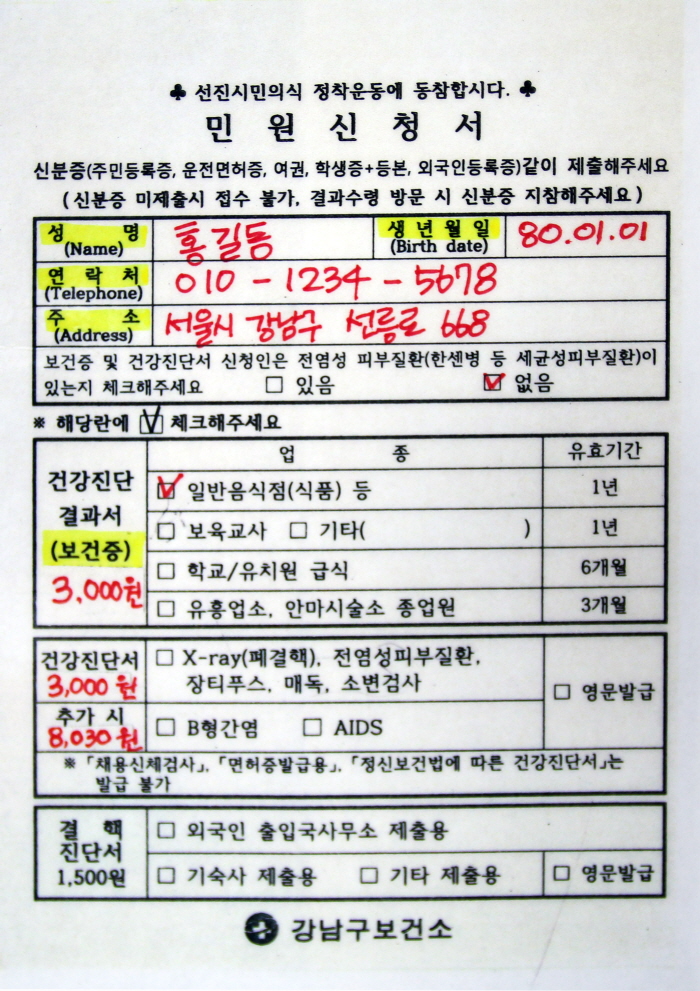 ♣ 선진시민의식 정착운동에 동참합시다. ♣
민 원 신 청 서
신분증(주민등록증, 운전면허증, 여권, 학생증+등본, 외국인등록증)같이 제출해주세요
(신분증 미제출시 접수 불가, 결과수령 방문 시 신분증 지참해주세요)
성 명 (Name) 홍길동 생년월일 (Birth date) 80.01.01
연락처 (Telephone) 010-1234-5678
주 소 (Address) 서울시 강남구 선릉로 668
보건증 및 건강진단서 신청인은 전염성 피부질환(한센병 등 세균성피부질환)이
있는지 체크해주세요 □ 있음 ☑ 없음
※ 해당란에 ☑ 체크해주세요
건강진단 결과서 (보건증) 3,000원
업 종 유효기간
☑ 일반음식점(식품) 등 1년
□ 보육교사 □ 기타( ) 1년
□ 학교/유치원 급식 6개월
□ 유흥업소, 안마시술소 종업원 3개월
건강진단서 3,000원
□ X-ray(폐결핵), 전염성피부질환,
장티푸스, 매독, 소변검사
□ 영문발급
추가 시 8,030원
□ B형간염 □ AIDS
※「채용신체검사」,「면허증발급용」,「정신보건법에 따른 건강진단서」는
발급 불가
결 핵 진단서 1,500원
□ 외국인 출입국사무소 제출용
□ 기숙사 제출용 □ 기타 제출용 □ 영문발급
강남구보건소